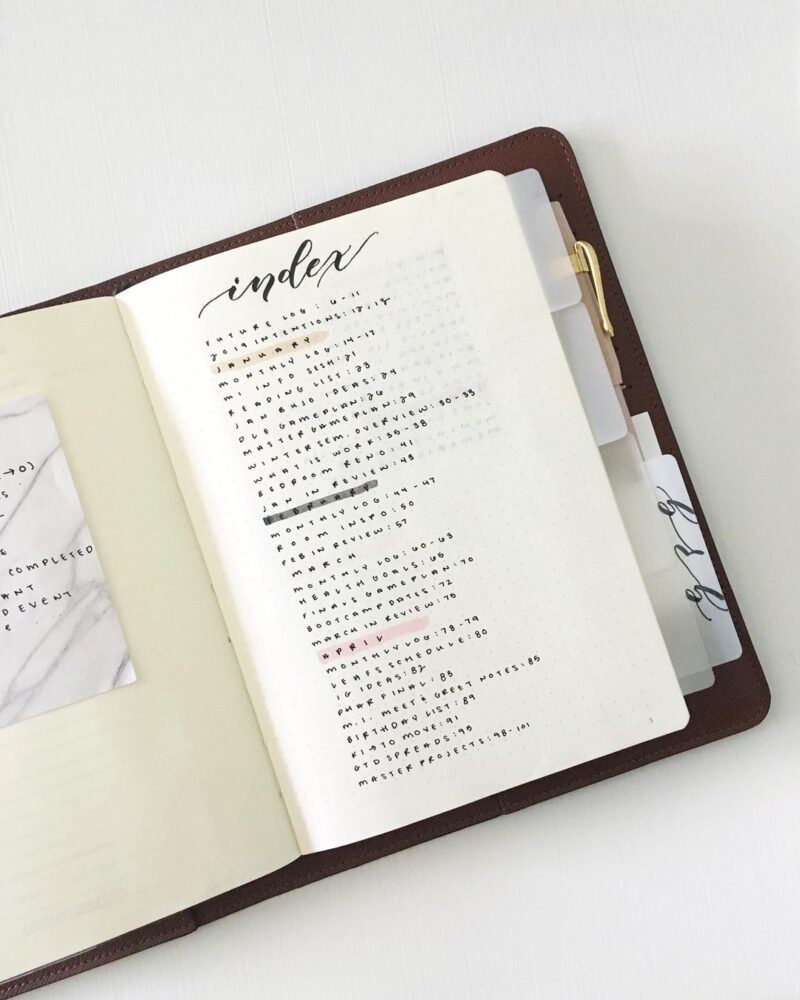 →O)
COMPLETED
EVENT
index
FUTURE LOG: 6-11
2019 INTENTIONS: 12-13
JANUARY
MONTHLY LOG: 14-17
M.I. INFO SESH: 21
READING LIST: 23
JAN BUJO IDEAS: 24
DLE GAMEPLAN: 26
MASTER GAMEPLAN: 29
WINTER SEM. OVERVIEW: 30-33
WHAT IS WORK: 35-38
BEDROOM RENO: 41
JAN IN REVIEW: 43
FEBRUARY
MONTHLY LOG: 44-47
ROOM INSPO: 50
FEB IN REVIEW: 57
MARCH
MONTHLY LOG: 60-63
HEALTH GOALS: 65
FINALS GAMEPLAN: 70
BOOTCAMP DATES: 72
MARCH IN REVIEW: 75
APRIL
MONTHLY LOG: 78-79
LEAFS SCHEDULE: 80
IG IDEAS: 82
PHAR FINAL: 83
M.I. MEET & GREET NOTES: 85
BIRTHDAY LIST: 89
K1 → TO MOVE: 91
GTD SPREADS: 95
MASTER PROJECTS: 98-101